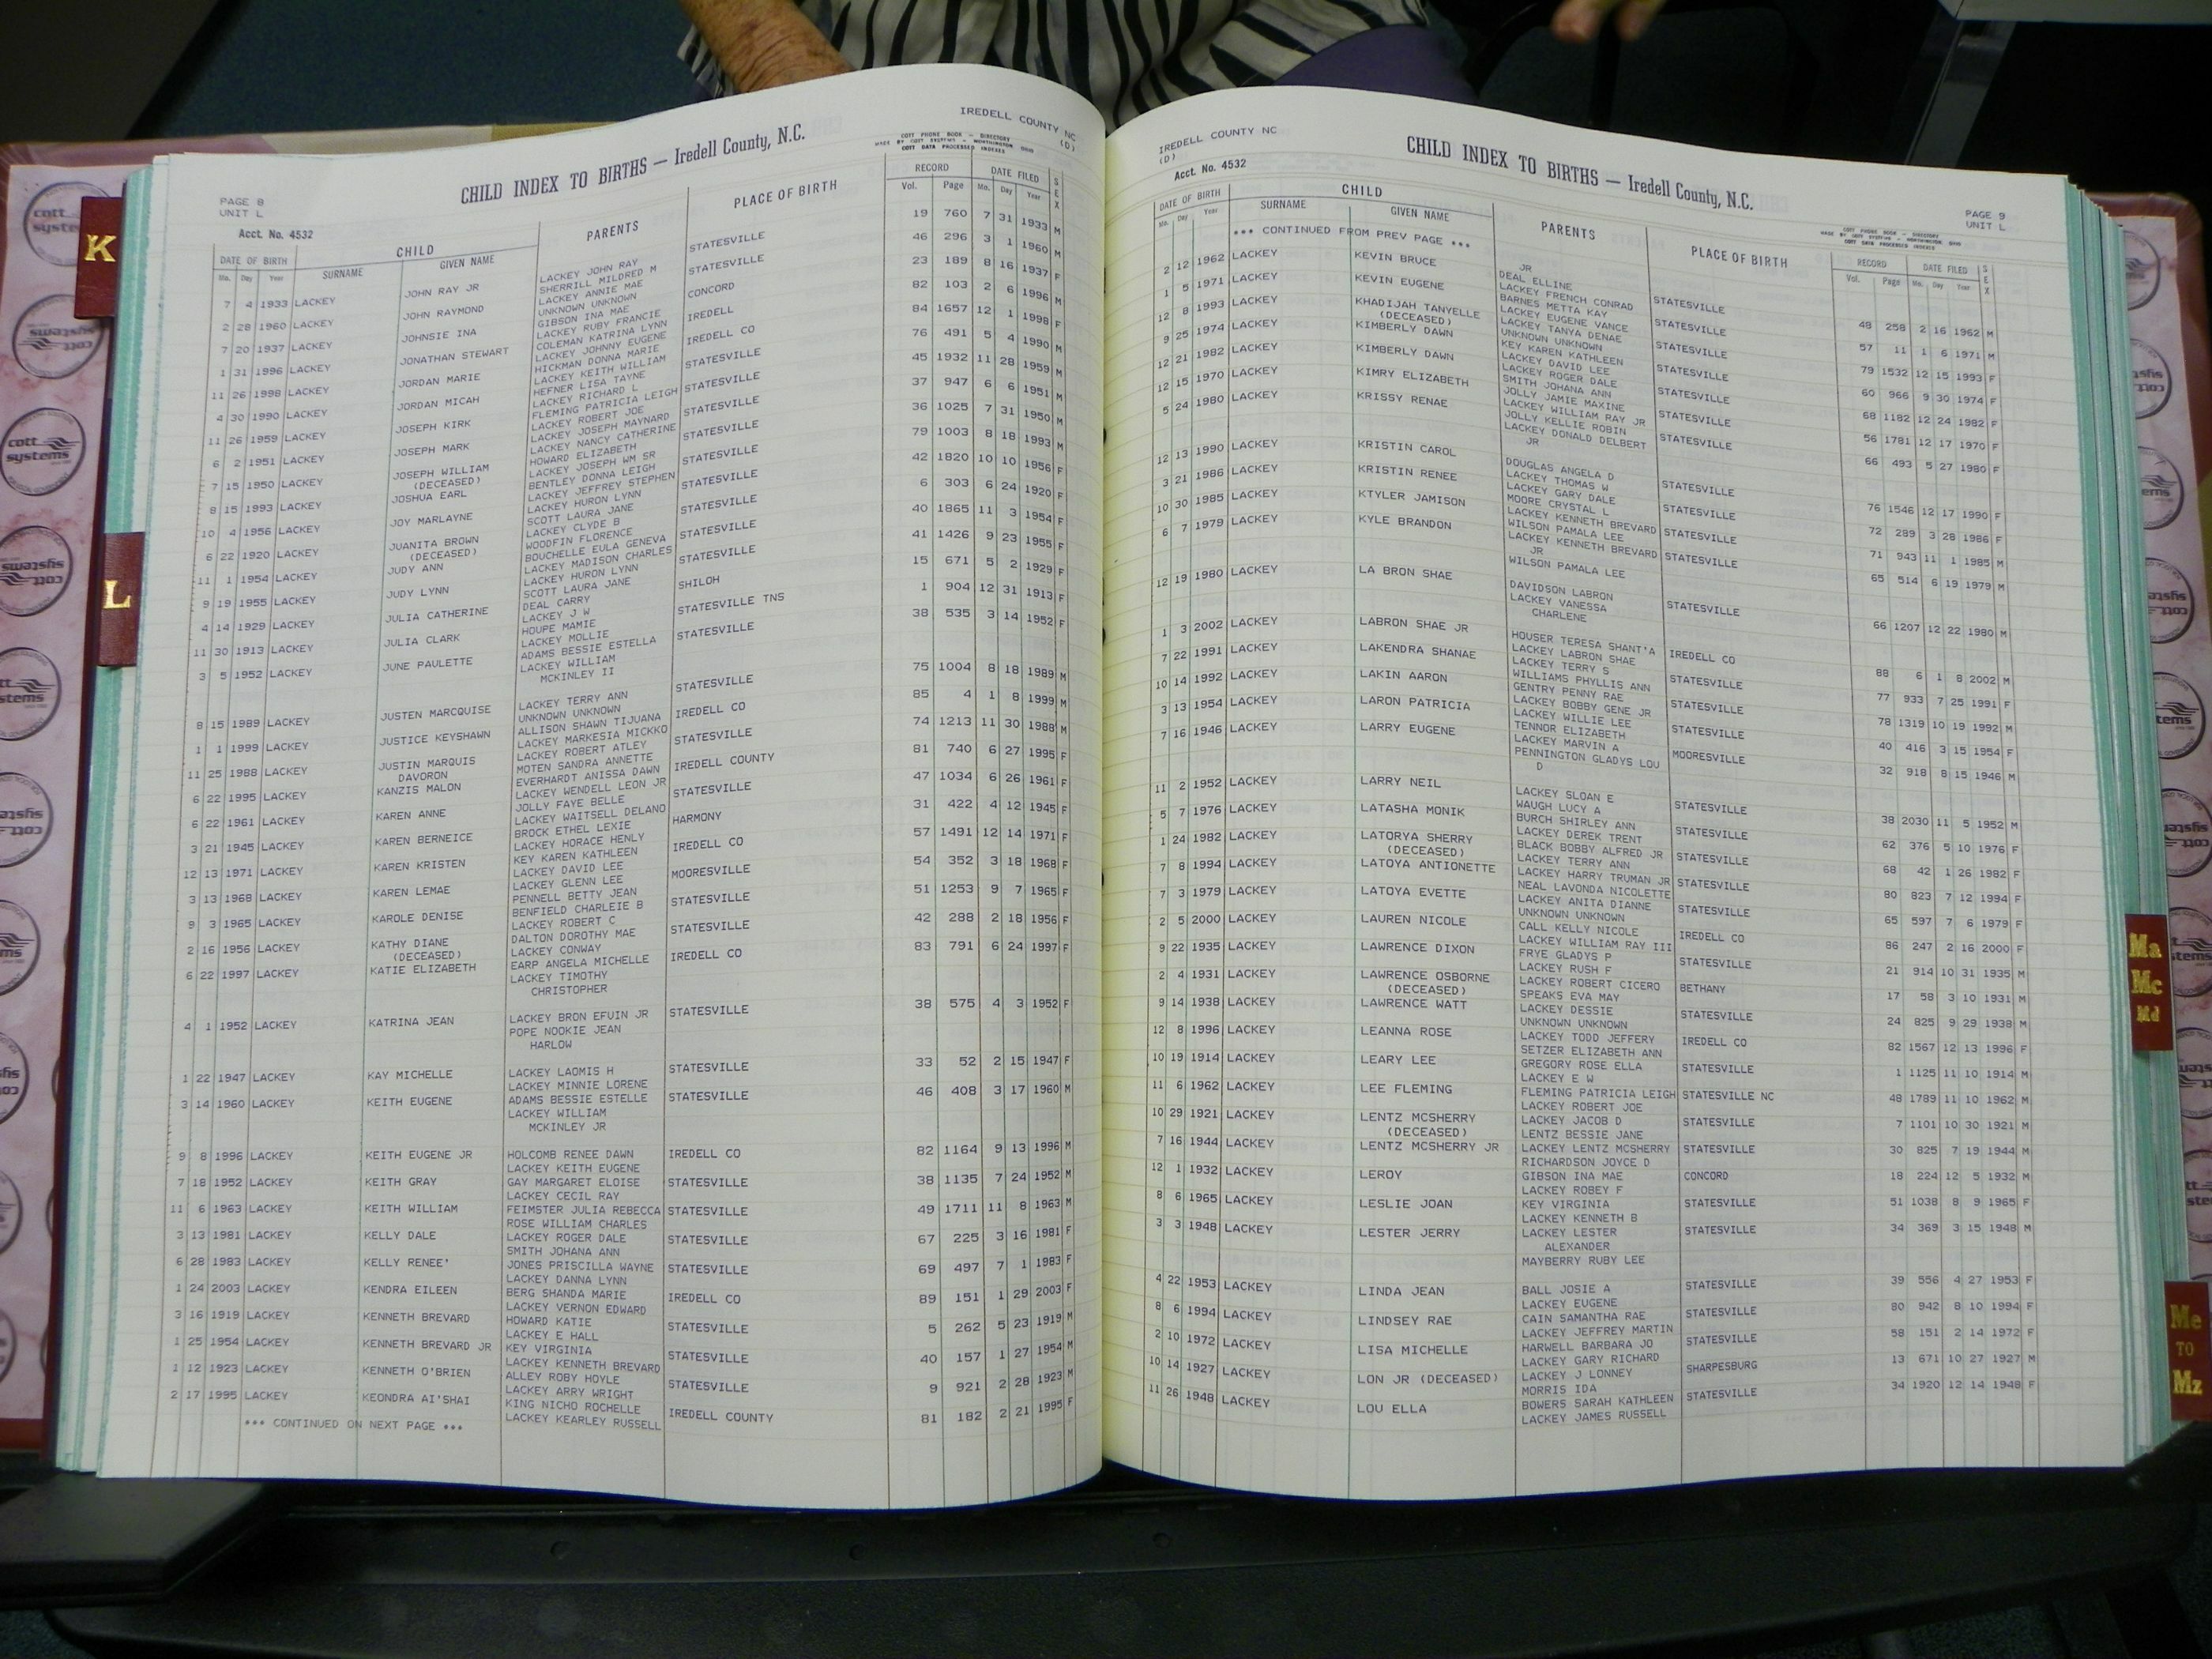 IREDELL COUNTY NC
(D)
COTT PHONE BOOK - DIRECTORY
MADE BY COTT SYSTEMS - WORTHINGTON OHIO
COTT DATA PROCESSED INDEXES
CHILD INDEX TO BIRTHS — Iredell County, N.C.
PAGE 8
UNIT L
Acct. No. 4532
DATE OF BIRTH CHILD PARENTS PLACE OF BIRTH RECORD DATE FILED SEX
Mo. Day Year SURNAME GIVEN NAME Vol. Page Mo. Day Year
7 4 1933 LACKEY JOHN RAY JR LACKEY JOHN RAY STATESVILLE 19 760 7 31 1933 M
SHERRILL MILDRED M
2 28 1960 LACKEY JOHN RAYMOND LACKEY ANNIE MAE STATESVILLE 46 296 3 1 1960 M
UNKNOWN UNKNOWN
7 20 1937 LACKEY JOHNSIE INA GIBSON INA MAE CONCORD 23 189 8 16 1937 F
LACKEY RUBY FRANCIE
1 31 1996 LACKEY JONATHAN STEWART COLEMAN KATRINA LYNN IREDELL 82 103 2 6 1996 M
LACKEY JOHNNY EUGENE
11 26 1998 LACKEY JORDAN MARIE HICKMAN DONNA MARIE IREDELL CO 84 1657 12 1 1998 F
LACKEY KEITH WILLIAM
4 30 1990 LACKEY JORDAN MICAH HEFNER LISA TAYNE STATESVILLE 76 491 5 4 1990 M
LACKEY RICHARD L
11 26 1959 LACKEY JOSEPH KIRK FLEMING PATRICIA LEIGH STATESVILLE 45 1932 11 28 1959 M
LACKEY ROBERT JOE
6 2 1951 LACKEY JOSEPH MARK LACKEY JOSEPH MAYNARD STATESVILLE 37 947 6 6 1951 M
LACKEY NANCY CATHERINE
7 15 1950 LACKEY JOSEPH WILLIAM HOWARD ELIZABETH STATESVILLE 36 1025 7 31 1950 M
(DECEASED) LACKEY JOSEPH WM SR
8 15 1993 LACKEY JOSHUA EARL BENTLEY DONNA LEIGH STATESVILLE 79 1003 8 18 1993 M
LACKEY JEFFREY STEPHEN
10 4 1956 LACKEY JOY MARLAYNE LACKEY HURON LYNN STATESVILLE 42 1820 10 10 1956 F
SCOTT LAURA JANE
6 22 1920 LACKEY JUANITA BROWN LACKEY CLYDE B STATESVILLE 6 303 6 24 1920 F
(DECEASED) WOODFIN FLORENCE
11 1 1954 LACKEY JUDY ANN BOUCHELLE EULA GENEVA STATESVILLE 40 1865 11 3 1954 F
LACKEY MADISON CHARLES
9 19 1955 LACKEY JUDY LYNN LACKEY HURON LYNN STATESVILLE 41 1426 9 23 1955 F
SCOTT LAURA JANE
4 14 1929 LACKEY JULIA CATHERINE DEAL CARRY SHILOH 15 671 5 2 1929 F
LACKEY J W
11 30 1913 LACKEY JULIA CLARK HOUPE MAMIE STATESVILLE TNS 1 904 12 31 1913 F
LACKEY MOLLIE
3 5 1952 LACKEY JUNE PAULETTE ADAMS BESSIE ESTELLA STATESVILLE 38 535 3 14 1952 F
LACKEY WILLIAM
MCKINLEY II
8 15 1989 LACKEY JUSTEN MARCQUISE LACKEY TERRY ANN STATESVILLE 75 1004 8 18 1989 M
UNKNOWN UNKNOWN
1 1 1999 LACKEY JUSTICE KEYSHAWN ALLISON SHAWN TIJUANA IREDELL CO 85 4 1 8 1999 M
LACKEY MARKESIA MICKKO
11 25 1988 LACKEY JUSTIN MARQUIS LACKEY ROBERT ATLEY STATESVILLE 74 1213 11 30 1988 M
DAVORON MOTEN SANDRA ANNETTE
6 22 1995 LACKEY KANZIS MALON EVERHARDT ANISSA DAWN IREDELL COUNTY 81 740 6 27 1995 F
LACKEY WENDELL LEON JR
6 22 1961 LACKEY KAREN ANNE JOLLY FAYE BELLE STATESVILLE 47 1034 6 26 1961 F
LACKEY WAITSELL DELANO
3 21 1945 LACKEY KAREN BERNEICE BROCK ETHEL LEXIE HARMONY 31 422 4 12 1945 F
LACKEY HORACE HENLY
12 13 1971 LACKEY KAREN KRISTEN KEY KAREN KATHLEEN IREDELL CO 57 1491 12 14 1971 F
LACKEY DAVID LEE
3 13 1968 LACKEY KAREN LEMAE LACKEY GLENN LEE MOORESVILLE 54 352 3 18 1968 F
PENNELL BETTY JEAN
9 3 1965 LACKEY KAROLE DENISE BENFIELD CHARLEIE B STATESVILLE 51 1253 9 7 1965 F
LACKEY ROBERT C
2 16 1956 LACKEY KATHY DIANE DALTON DOROTHY MAE STATESVILLE 42 288 2 18 1956 F
(DECEASED) LACKEY CONWAY
6 22 1997 LACKEY KATIE ELIZABETH EARP ANGELA MICHELLE IREDELL CO 83 791 6 24 1997 F
LACKEY TIMOTHY
CHRISTOPHER
4 1 1952 LACKEY KATRINA JEAN LACKEY BRON EFUIN JR STATESVILLE 38 575 4 3 1952 F
POPE NOOKIE JEAN
HARLOW
1 22 1947 LACKEY KAY MICHELLE LACKEY LAOMIS H STATESVILLE 33 52 2 15 1947 F
LACKEY MINNIE LORENE
3 14 1960 LACKEY KEITH EUGENE ADAMS BESSIE ESTELLE STATESVILLE 46 408 3 17 1960 M
LACKEY WILLIAM
MCKINLEY JR
9 8 1996 LACKEY KEITH EUGENE JR HOLCOMB RENEE DAWN IREDELL CO 82 1164 9 13 1996 M
LACKEY KEITH EUGENE
7 18 1952 LACKEY KEITH GRAY GAY MARGARET ELOISE STATESVILLE 38 1135 7 24 1952 M
LACKEY CECIL RAY
11 6 1963 LACKEY KEITH WILLIAM FEIMSTER JULIA REBECCA STATESVILLE 49 1711 11 8 1963 M
ROSE WILLIAM CHARLES
3 13 1981 LACKEY KELLY DALE LACKEY ROGER DALE STATESVILLE 67 225 3 16 1981 F
SMITH JOHANA ANN
6 28 1983 LACKEY KELLY RENEE' JONES PRISCILLA WAYNE STATESVILLE 69 497 7 1 1983 F
LACKEY DANNA LYNN
1 24 2003 LACKEY KENDRA EILEEN BERG SHANDA MARIE IREDELL CO 89 151 1 29 2003 F
LACKEY VERNON EDWARD
3 16 1919 LACKEY KENNETH BREVARD HOWARD KATIE STATESVILLE 5 262 5 23 1919 M
LACKEY E HALL
1 25 1954 LACKEY KENNETH BREVARD JR KEY VIRGINIA STATESVILLE 40 157 1 27 1954 M
LACKEY KENNETH BREVARD
1 12 1923 LACKEY KENNETH O'BRIEN ALLEY ROBY HOYLE STATESVILLE 9 921 2 28 1923 M
LACKEY ARRY WRIGHT
2 17 1995 LACKEY KEONDRA AI'SHAI KING NICHO ROCHELLE IREDELL COUNTY 81 182 2 21 1995 F
LACKEY KEARLEY RUSSELL
*** CONTINUED ON NEXT PAGE ***
IREDELL COUNTY NC
(D)
Acct. No. 4532
CHILD INDEX TO BIRTHS — Iredell County, N.C.
PAGE 9
UNIT L
COTT PHONE BOOK - DIRECTORY
MADE BY COTT SYSTEMS - WORTHINGTON OHIO
COTT DATA PROCESSED INDEXES
DATE OF BIRTH CHILD PARENTS PLACE OF BIRTH RECORD DATE FILED SEX
Mo. Day Year SURNAME GIVEN NAME Vol. Page Mo. Day Year
*** CONTINUED FROM PREV PAGE ***
JR
2 12 1962 LACKEY KEVIN BRUCE DEAL ELLINE STATESVILLE 48 258 2 16 1962 M
LACKEY FRENCH CONRAD
1 5 1971 LACKEY KEVIN EUGENE BARNES METTA KAY STATESVILLE 57 11 1 6 1971 M
LACKEY EUGENE VANCE
12 8 1993 LACKEY KHADIJAH TANYELLE LACKEY TANYA DENAE STATESVILLE 79 1532 12 15 1993 F
(DECEASED) UNKNOWN UNKNOWN
9 25 1974 LACKEY KIMBERLY DAWN KEY KAREN KATHLEEN STATESVILLE 60 966 9 30 1974 F
LACKEY DAVID LEE
12 21 1982 LACKEY KIMBERLY DAWN LACKEY ROGER DALE STATESVILLE 68 1182 12 24 1982 F
SMITH JOHANA ANN
12 15 1970 LACKEY KIMRY ELIZABETH JOLLY JAMIE MAXINE STATESVILLE 56 1781 12 17 1970 F
LACKEY WILLIAM RAY JR
5 24 1980 LACKEY KRISSY RENAE JOLLY KELLIE ROBIN 66 493 5 27 1980 F
LACKEY DONALD DELBERT
JR
12 13 1990 LACKEY KRISTIN CAROL DOUGLAS ANGELA D STATESVILLE 76 1546 12 17 1990 F
LACKEY THOMAS W
3 21 1986 LACKEY KRISTIN RENEE LACKEY GARY DALE STATESVILLE 72 289 3 28 1986 F
MOORE CRYSTAL L
10 30 1985 LACKEY KTYLER JAMISON LACKEY KENNETH BREVARD STATESVILLE 71 943 11 1 1985 M
WILSON PAMALA LEE
6 7 1979 LACKEY KYLE BRANDON LACKEY KENNETH BREVARD STATESVILLE 65 514 6 19 1979 M
JR
WILSON PAMALA LEE
12 19 1980 LACKEY LA BRON SHAE DAVIDSON LABRON STATESVILLE 66 1207 12 22 1980 M
LACKEY VANESSA
CHARLENE
1 3 2002 LACKEY LABRON SHAE JR HOUSER TERESA SHANT'A IREDELL CO 88 6 1 8 2002 M
LACKEY LABRON SHAE
7 22 1991 LACKEY LAKENDRA SHANAE LACKEY TERRY S STATESVILLE 77 933 7 25 1991 F
WILLIAMS PHYLLIS ANN
10 14 1992 LACKEY LAKIN AARON GENTRY PENNY RAE STATESVILLE 78 1319 10 19 1992 M
LACKEY BOBBY GENE JR
3 13 1954 LACKEY LARON PATRICIA LACKEY WILLIE LEE STATESVILLE 40 416 3 15 1954 F
TENNOR ELIZABETH
7 16 1946 LACKEY LARRY EUGENE LACKEY MARVIN A MOORESVILLE 32 918 8 15 1946 M
PENNINGTON GLADYS LOU
D
11 2 1952 LACKEY LARRY NEIL LACKEY SLOAN E STATESVILLE 38 2030 11 5 1952 M
WAUGH LUCY A
5 7 1976 LACKEY LATASHA MONIK BURCH SHIRLEY ANN STATESVILLE 62 376 5 10 1976 F
LACKEY DEREK TRENT
1 24 1982 LACKEY LATORYA SHERRY BLACK BOBBY ALFRED JR STATESVILLE 68 42 1 26 1982 F
(DECEASED) LACKEY TERRY ANN
7 8 1994 LACKEY LATOYA ANTIONETTE LACKEY HARRY TRUMAN JR STATESVILLE 80 823 7 12 1994 F
NEAL LAVONDA NICOLETTE
7 3 1979 LACKEY LATOYA EVETTE LACKEY ANITA DIANNE STATESVILLE 65 597 7 6 1979 F
UNKNOWN UNKNOWN
2 5 2000 LACKEY LAUREN NICOLE CALL KELLY NICOLE IREDELL CO 86 247 2 16 2000 F
LACKEY WILLIAM RAY III
9 22 1935 LACKEY LAWRENCE DIXON FRYE GLADYS P STATESVILLE 21 914 10 31 1935 M
LACKEY RUSH F
2 4 1931 LACKEY LAWRENCE OSBORNE LACKEY ROBERT CICERO BETHANY 17 58 3 10 1931 M
(DECEASED) SPEAKS EVA MAY
9 14 1938 LACKEY LAWRENCE WATT LACKEY DESSIE STATESVILLE 24 825 9 29 1938 M
UNKNOWN UNKNOWN
12 8 1996 LACKEY LEANNA ROSE LACKEY TODD JEFFERY IREDELL CO 82 1567 12 13 1996 F
SETZER ELIZABETH ANN
10 19 1914 LACKEY LEARY LEE GREGORY ROSE ELLA STATESVILLE 1 1125 11 10 1914 M
LACKEY E W
11 6 1962 LACKEY LEE FLEMING FLEMING PATRICIA LEIGH STATESVILLE NC 48 1789 11 10 1962 M
LACKEY ROBERT JOE
10 29 1921 LACKEY LENTZ MCSHERRY LACKEY JACOB D STATESVILLE 7 1101 10 30 1921 M
(DECEASED) LENTZ BESSIE JANE
7 16 1944 LACKEY LENTZ MCSHERRY JR LACKEY LENTZ MCSHERRY STATESVILLE 30 825 7 19 1944 M
RICHARDSON JOYCE D
12 1 1932 LACKEY LEROY GIBSON INA MAE CONCORD 18 224 12 5 1932 M
LACKEY ROBEY F
8 6 1965 LACKEY LESLIE JOAN KEY VIRGINIA STATESVILLE 51 1038 8 9 1965 F
LACKEY KENNETH B
3 3 1948 LACKEY LESTER JERRY LACKEY LESTER STATESVILLE 34 369 3 15 1948 M
ALEXANDER
MAYBERRY RUBY LEE
4 22 1953 LACKEY LINDA JEAN BALL JOSIE A STATESVILLE 39 556 4 27 1953 F
LACKEY EUGENE
8 6 1994 LACKEY LINDSEY RAE CAIN SAMANTHA RAE STATESVILLE 80 942 8 10 1994 F
LACKEY JEFFREY MARTIN
2 10 1972 LACKEY LISA MICHELLE HARWELL BARBARA JO STATESVILLE 58 151 2 14 1972 F
LACKEY GARY RICHARD
10 14 1927 LACKEY LON JR (DECEASED) LACKEY J LONNEY SHARPESBURG 13 671 10 27 1927 M
MORRIS IDA
11 26 1948 LACKEY LOU ELLA BOWERS SARAH KATHLEEN STATESVILLE 34 1920 12 14 1948 F
LACKEY JAMES RUSSELL
K
L
Ma
Mc
Md
Me
TO
Mz
cott
systems